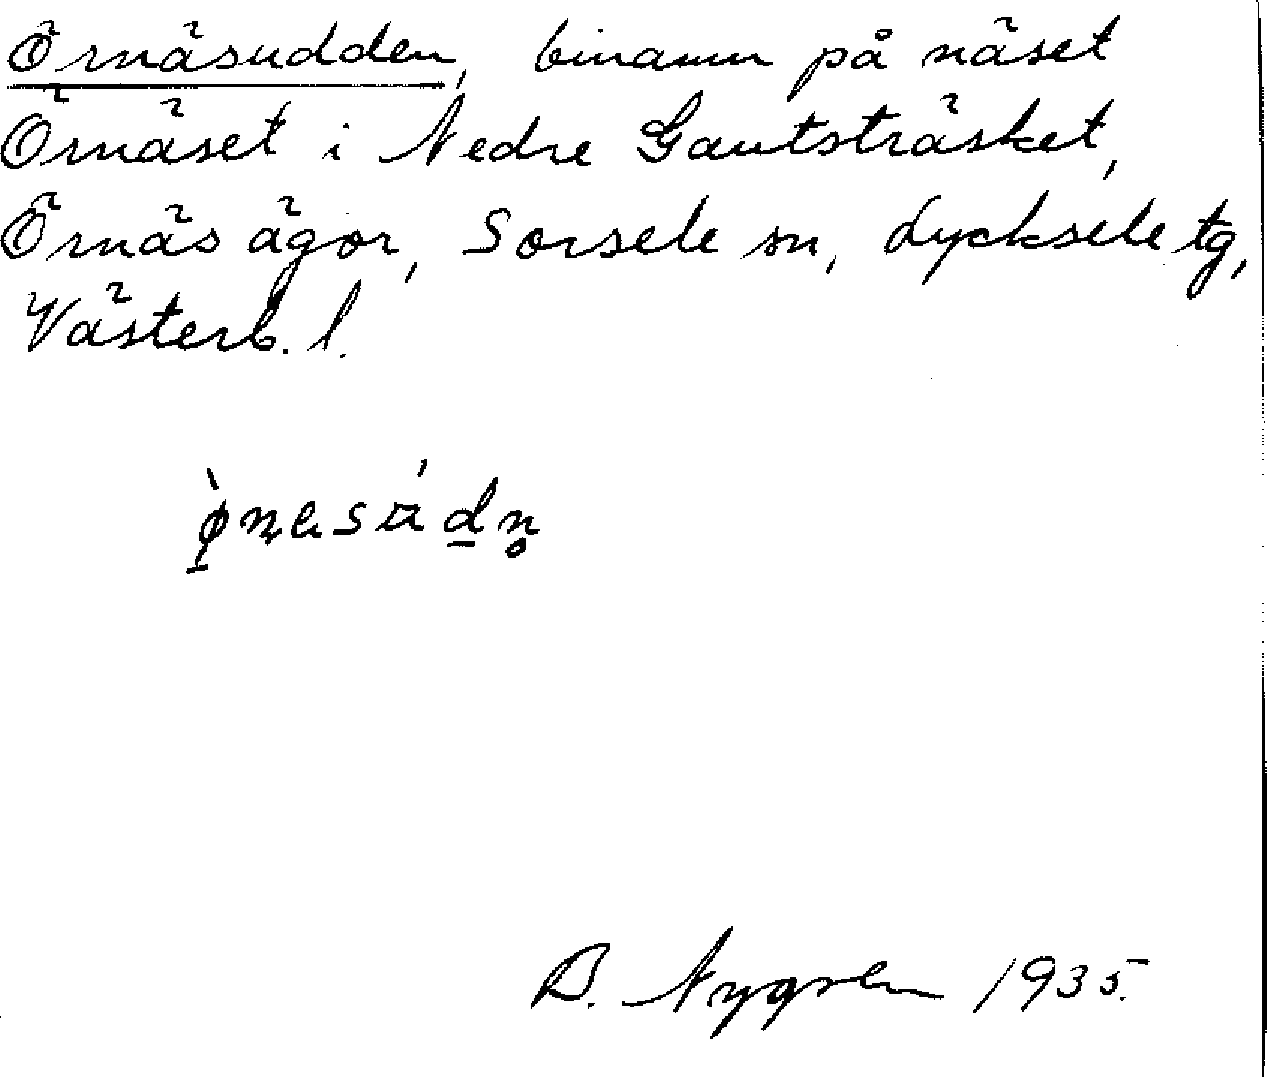 Örnäsudden, binamn på näset
Örnäset i Nedre Gautsträsket,
Örnäs ägor, Sorsele sn, Lycksele tg,
Västerb. l.
B. Nygren 1935.